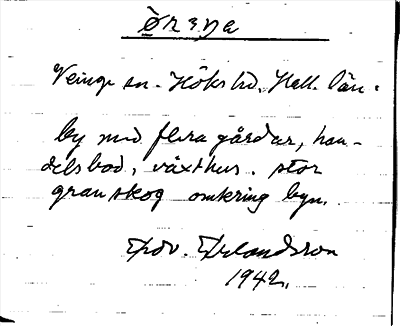 Veinge sn. Höks hd. Hall. län.
by med flera gårdar, han-
delsbod, växthus. stor
granskog omkring byn.
Erlandsson
1942.